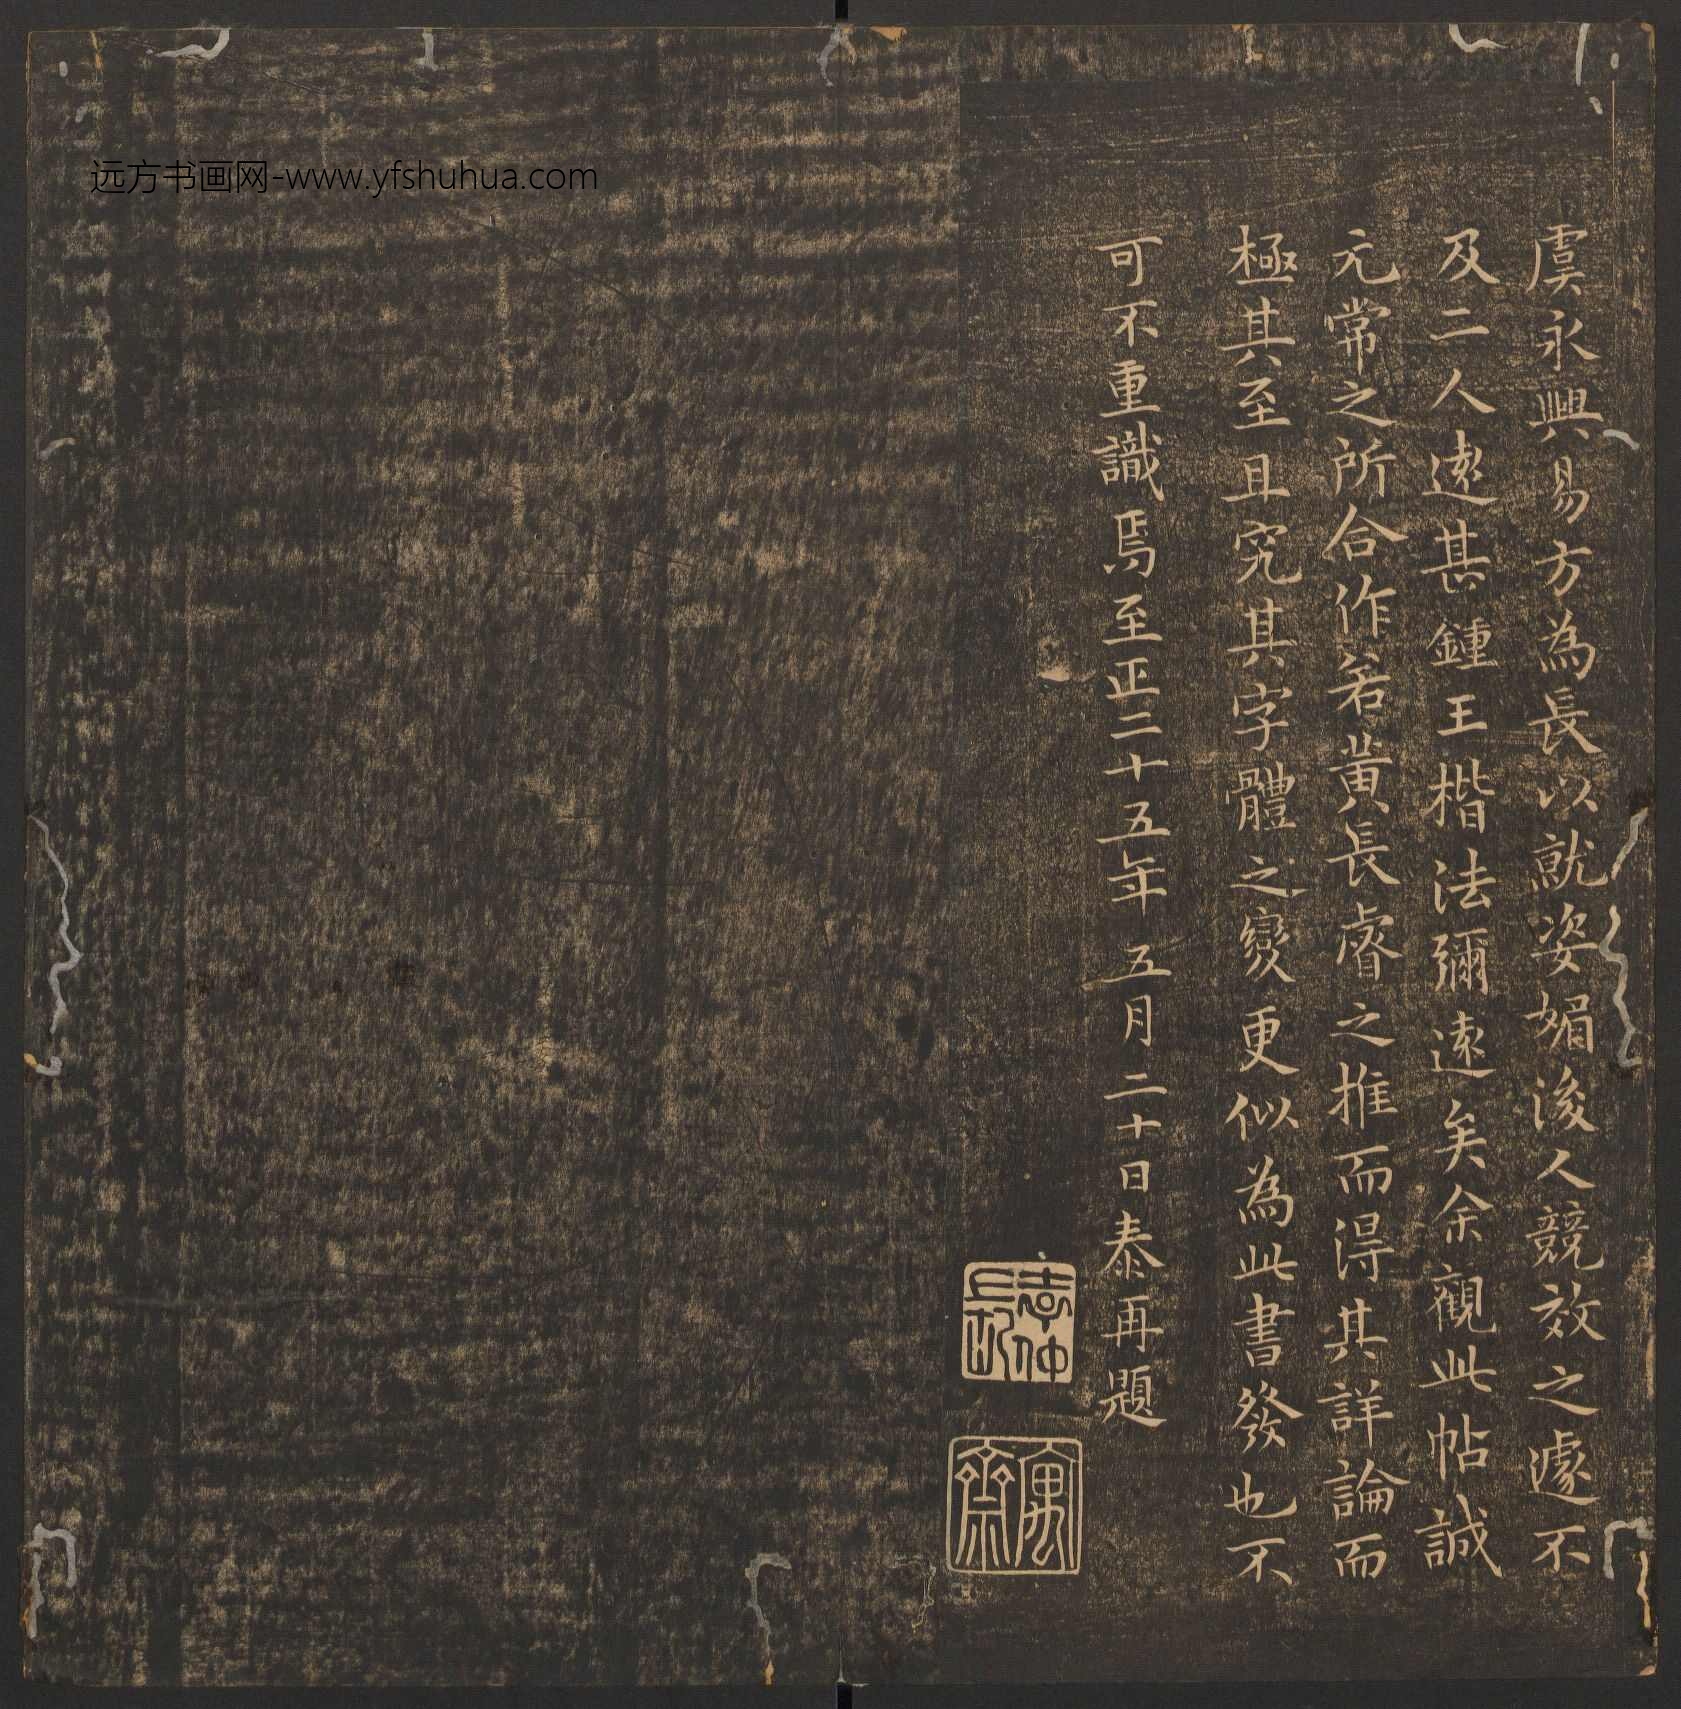 虞永興易方為長以就姿媚後人競效之遽不
及二人遠甚鍾王楷法彌遠矣余觀此帖誠
元常之所合作若黄長睿之推而得其詳論而
極其至且究其字體之變更似為此書發也不
可不重識焉至正二十五年五月二十日泰再題
远方书画网-www.yfshuhua.com